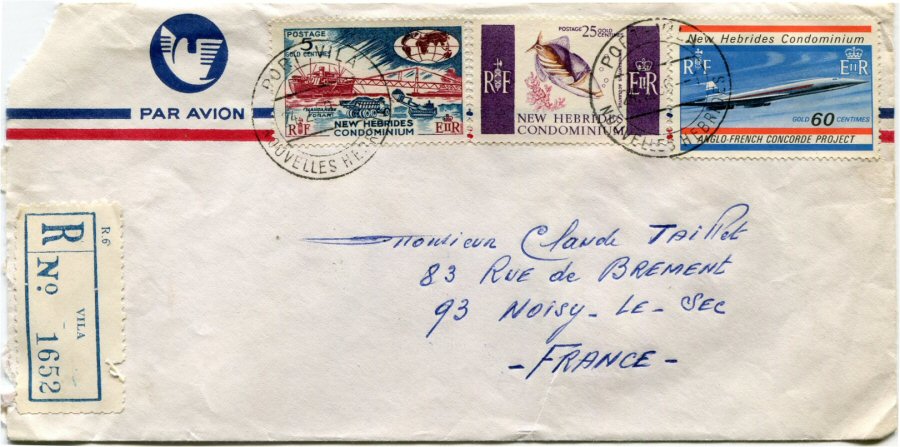 PAR AVION
POSTAGE
5
GOLD CENTIMES
FORARI
R F
NEW HEBRIDES
CONDOMINIUM
EIIR
POSTAGE 25 GOLD
R F
EIIR
NEW HEBRIDES
CONDOMINIUM
New Hebrides Condominium
R F
EIIR
GOLD 60 CENTIMES
ANGLO-FRENCH CONCORDE PROJECT
PORT-VILA
NOUVELLES HEBRIDES
R.6
R
No
VILA
1652
Monsieur Claude Taillet
83 Rue de BREMENT
93 Noisy-Le-Sec
-FRANCE-